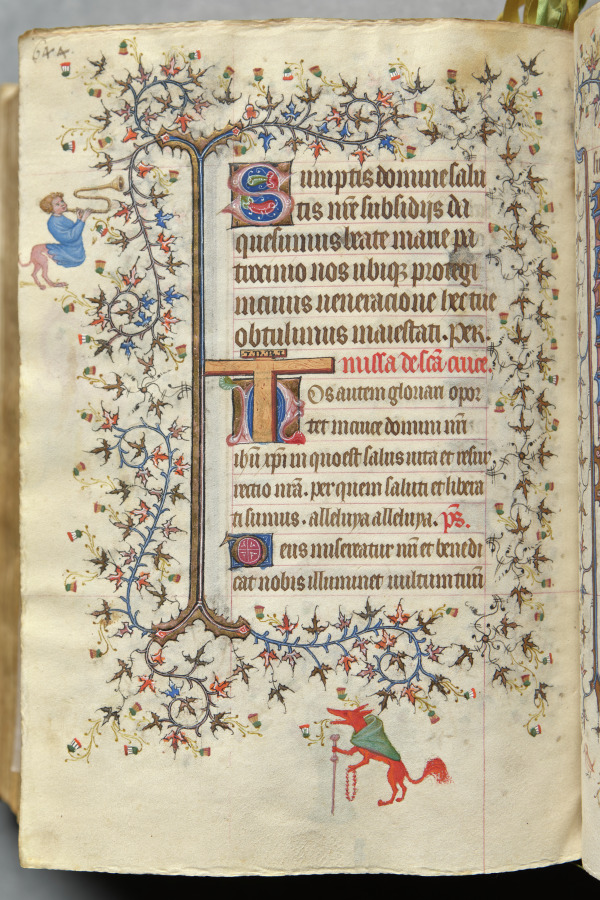 644.
Sumptis domine salu
tis nr̄e subsidijs da
quesumus beate marie pa
trocinio nos ubiq; protegi
in cuius ueneracione hec tue
obtulimus maiestati. Per.
missa de scā cruce.
Nos autem gloriari opor
tet in cruce domini nr̄i
ihū xp̄i in quo est salus uita et resur
rectio nr̄a. per quem saluti et libera
ti sumus. alleluya alleluya. ps̄.
Deus misereatur nr̄i et benedi
cat nobis illuminet uultum suū